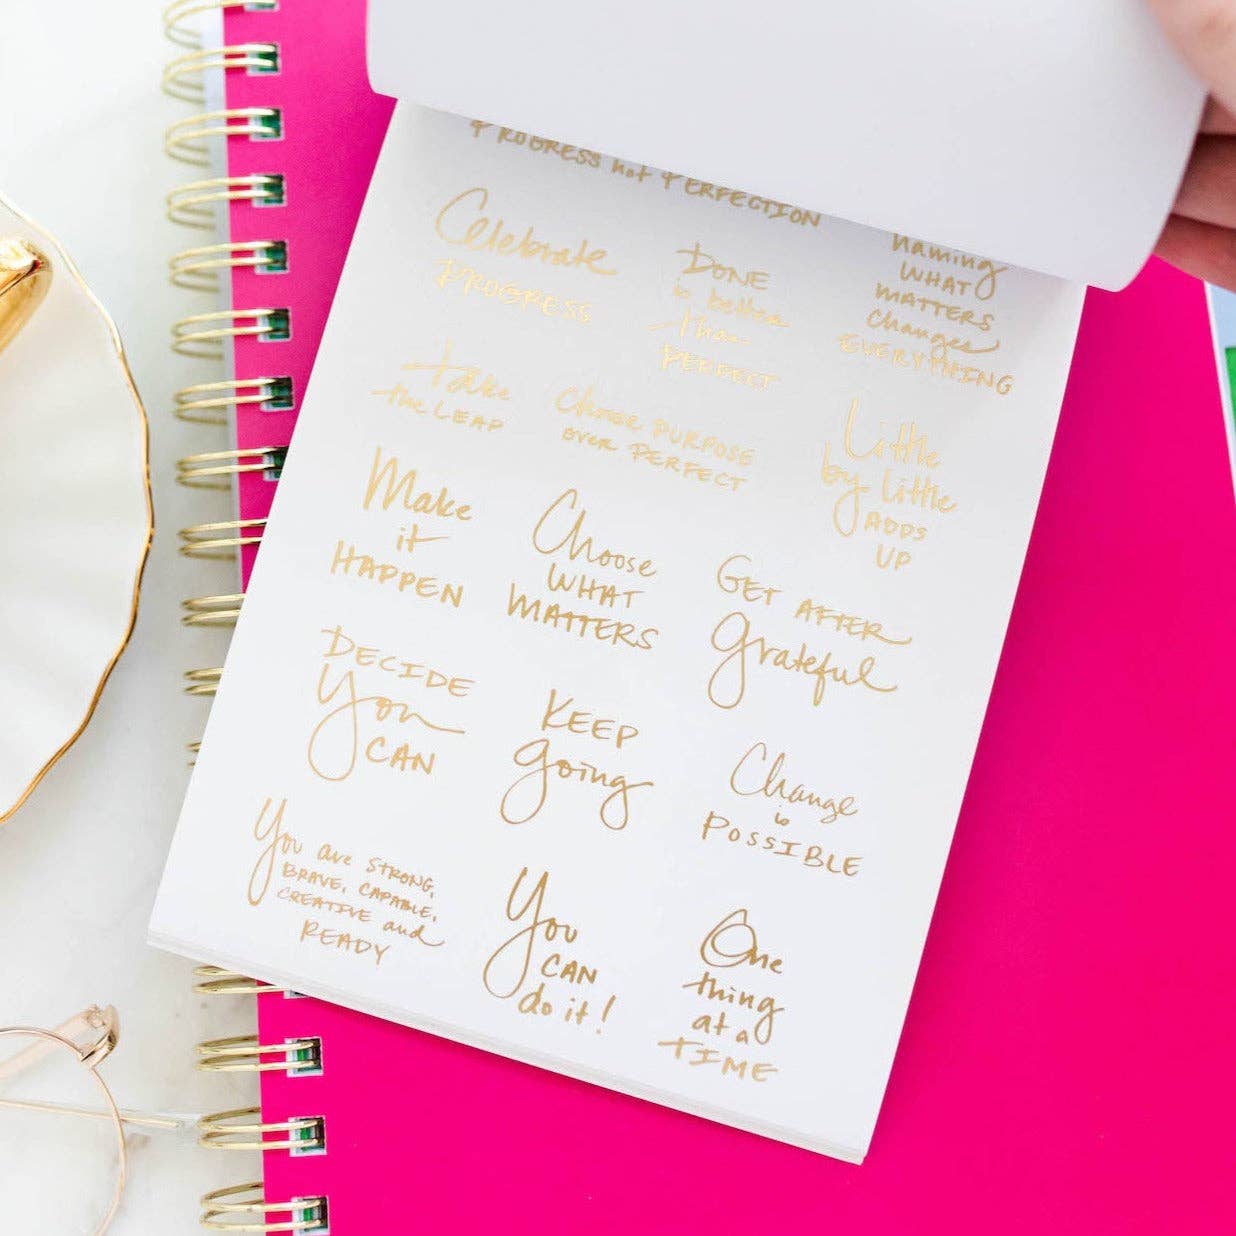 PROGRESS not PERFECTION
Celebrate
PROGRESS
DONE
is better
than
PERFECT
naming
WHAT
MATTERS
changes
EVERYTHING
take
the LEAP
Choose PURPOSE
over PERFECT
Little
by little
ADDS
UP
Make
it
HAPPEN
Choose
WHAT
MATTERS
GET AFTER
grateful
DECIDE
You
CAN
KEEP
going
Change
is
POSSIBLE
You are STRONG,
BRAVE, CAPABLE,
CREATIVE and
READY
You
CAN
do it!
One
thing
at a
TIME